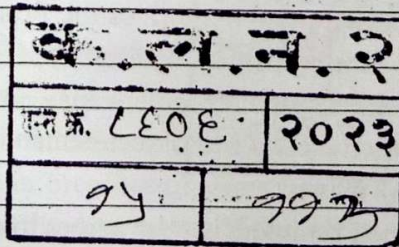 क.ल.न.२
दस्त क्र. ८६०६ २०२३
१५ ११३